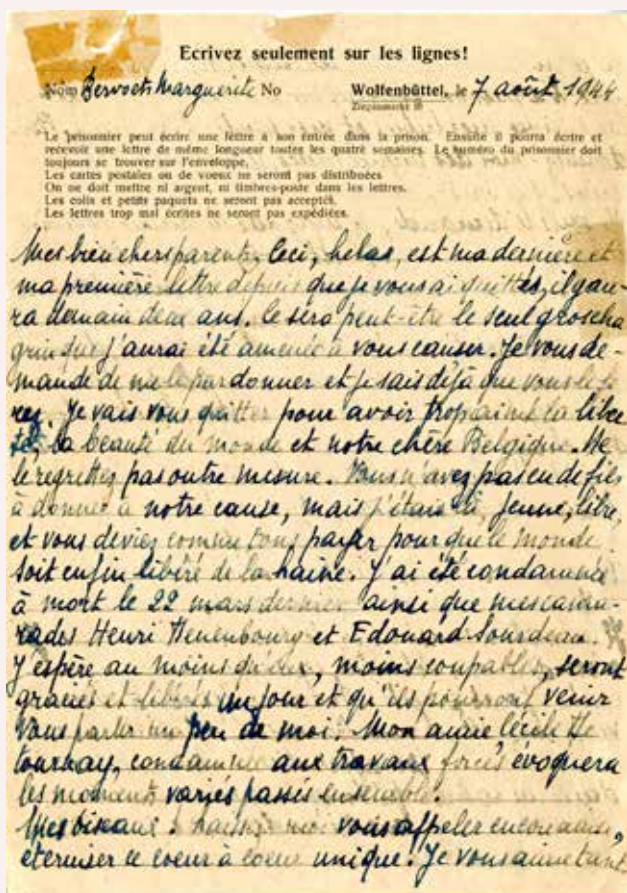 Ecrivez seulement sur les lignes!
Nom Bervoets Marguerite No Wolfenbüttel, le 7 août 1944
Le prisonnier peut écrire une lettre à son entrée dans la prison. Ensuite il pourra écrire et
recevoir une lettre de même longueur toutes les quatre semaines. Le numéro du prisonnier doit
toujours se trouver sur l'enveloppe.
Les cartes postales ou de voeux ne seront pas distribuées
On ne doit mettre ni argent, ni timbres-poste dans les lettres.
Les colis et petits paquets ne seront pas acceptés.
Les lettres trop mal écrites ne seront pas expédiées.
Mes bien chers parents, Ceci, helas, est ma dernière et
ma première lettre depuis que je vous ai quittés, il y au-
ra demain deux ans. Ce sera peut-être le seul gros cha
grin que j'aurai été amenée à vous causer. Je vous de-
mande de me le pardonner et je sais déjà que vous le fe
rez. Je vais vous quitter pour avoir trop aimé la liber
té, la beauté du monde et notre chère Belgique. Ne
le regrettez pas outre mesure. Vous n'avez pas eu de fils
à donner à notre cause, mais j'étais là, jeune, libre,
et vous deviez comme tous payer pour que le monde
soit enfin libéré de la haine. J'ai été condamnée
à mort le 22 mars dernier ainsi que mes cama-
rades Henri et Edouard
J'espère au moins qu'eux, moins coupables, seront
graciés et libres un jour et qu'ils pourront venir
vous parler un peu de moi. Mon amie Cécile de
tournay, condamnée aux travaux forcés évoquera
les moments variés passés ensemble.
Mes laissez moi vous appeler encore ainsi,
éterniser ce coeur à coeur unique. Je vous aime tant